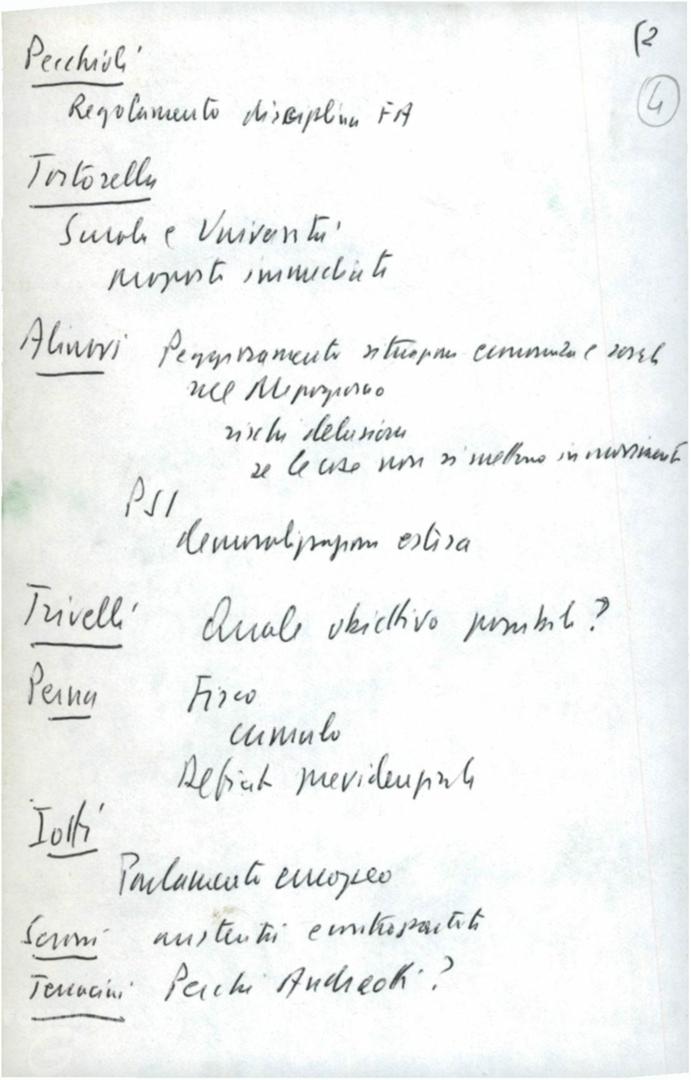 (2
4
Pecchioli
Regolamento disciplina FA
Tortorella
Scuola e Università
proposte immediate
Alinovi Peggioramento situazione economica e sociale
nel Mezzogiorno
rischi delusione
se le cose non si mettono in movimento
PSI
estiva
Trivelli Quale obiettivo possibile?
Perna Fisco
cumulo
Deficit previdenziale
Iotti
Parlamento europeo
Seroni austerità e contropartite
Terracini Perché Andreotti?